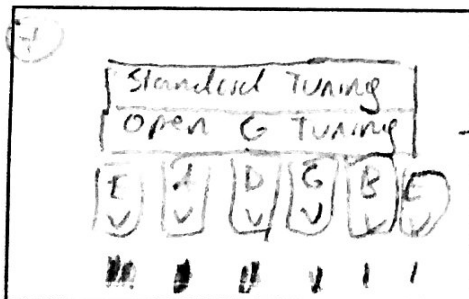 Standard Tuning
Open G Tuning
E A D G B E